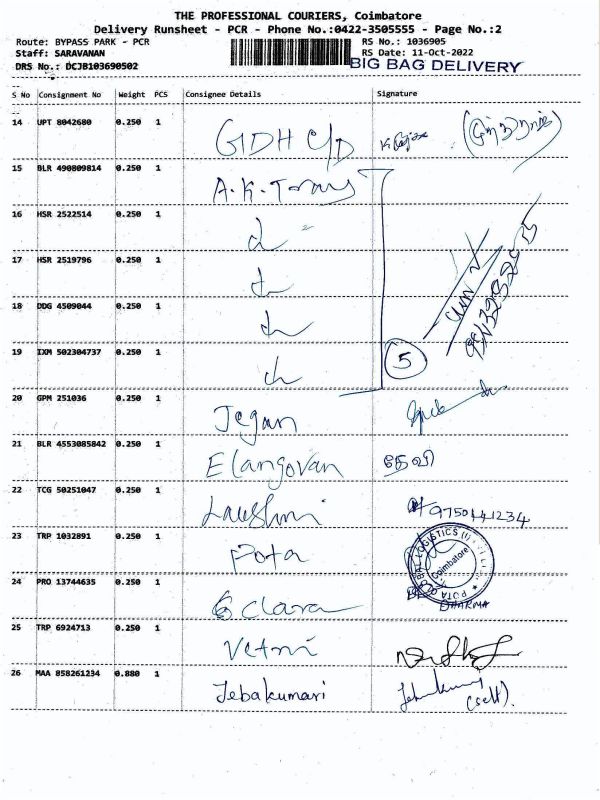 THE PROFESSIONAL COURIERS, Coimbatore
Delivery Runsheet - PCR - Phone No.:0422-3505555 - Page No.:2
Route: BYPASS PARK - PCR RS No.: 1036905
Staff: SARAVANAN RS Date: 11-Oct-2022
DRS No.: DCJB103690502 BIG BAG DELIVERY
S No Consignment No Weight PCS Consignee Details Signature
14 UPT 8042680 0.250 1 GDH C/D
15 BLR 490809814 0.250 1 A.K.Tomy
16 HSR 2522514 0.250 1
17 HSR 2519796 0.250 1
18 DDG 4509044 0.250 1
19 IXM 502304737 0.250 1 5
20 GPM 251036 0.250 1 Jegan
21 BLR 4553085842 0.250 1 Elangovan தேவி
22 TCG 50251047 0.250 1 9750141234
23 TRP 1032891 0.250 1 Pota
24 PRO 13744635 0.250 1 Clara
Coimbatore
DHARMA
25 TRP 6924713 0.250 1 Vetri
26 MAA 858261234 0.880 1 Jebakumari Jebakumari
(self).